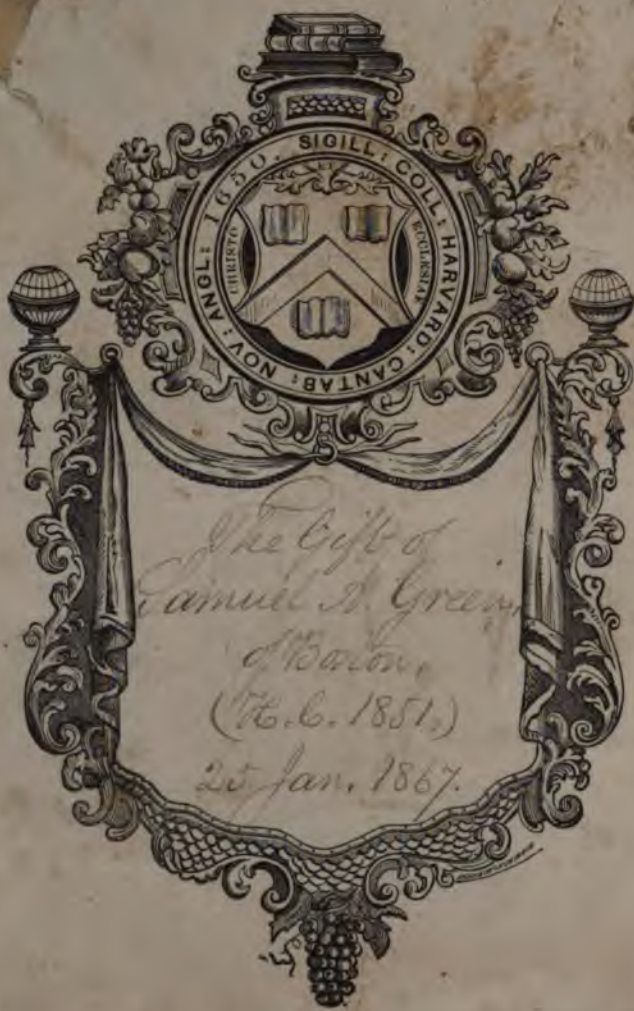 SIGILL: COLL: HARVARD: CANTAB: NOV: ANGL: 1650.
CHRISTO
ET
ECCLESIAE
The Gift of
Samuel A. Green,
of Boston,
(H. C. 1851.)
25 Jan. 1867.